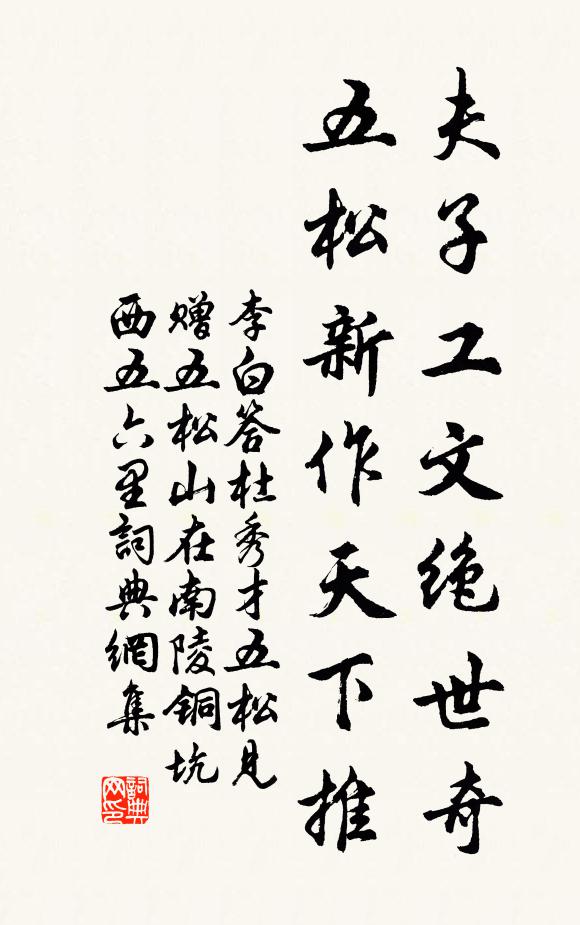 夫子工文绝世奇
五松新作天下推
李白答杜秀才五松见
赠五松山在南陵铜坑
西五六里詞典網集
詞典
网印